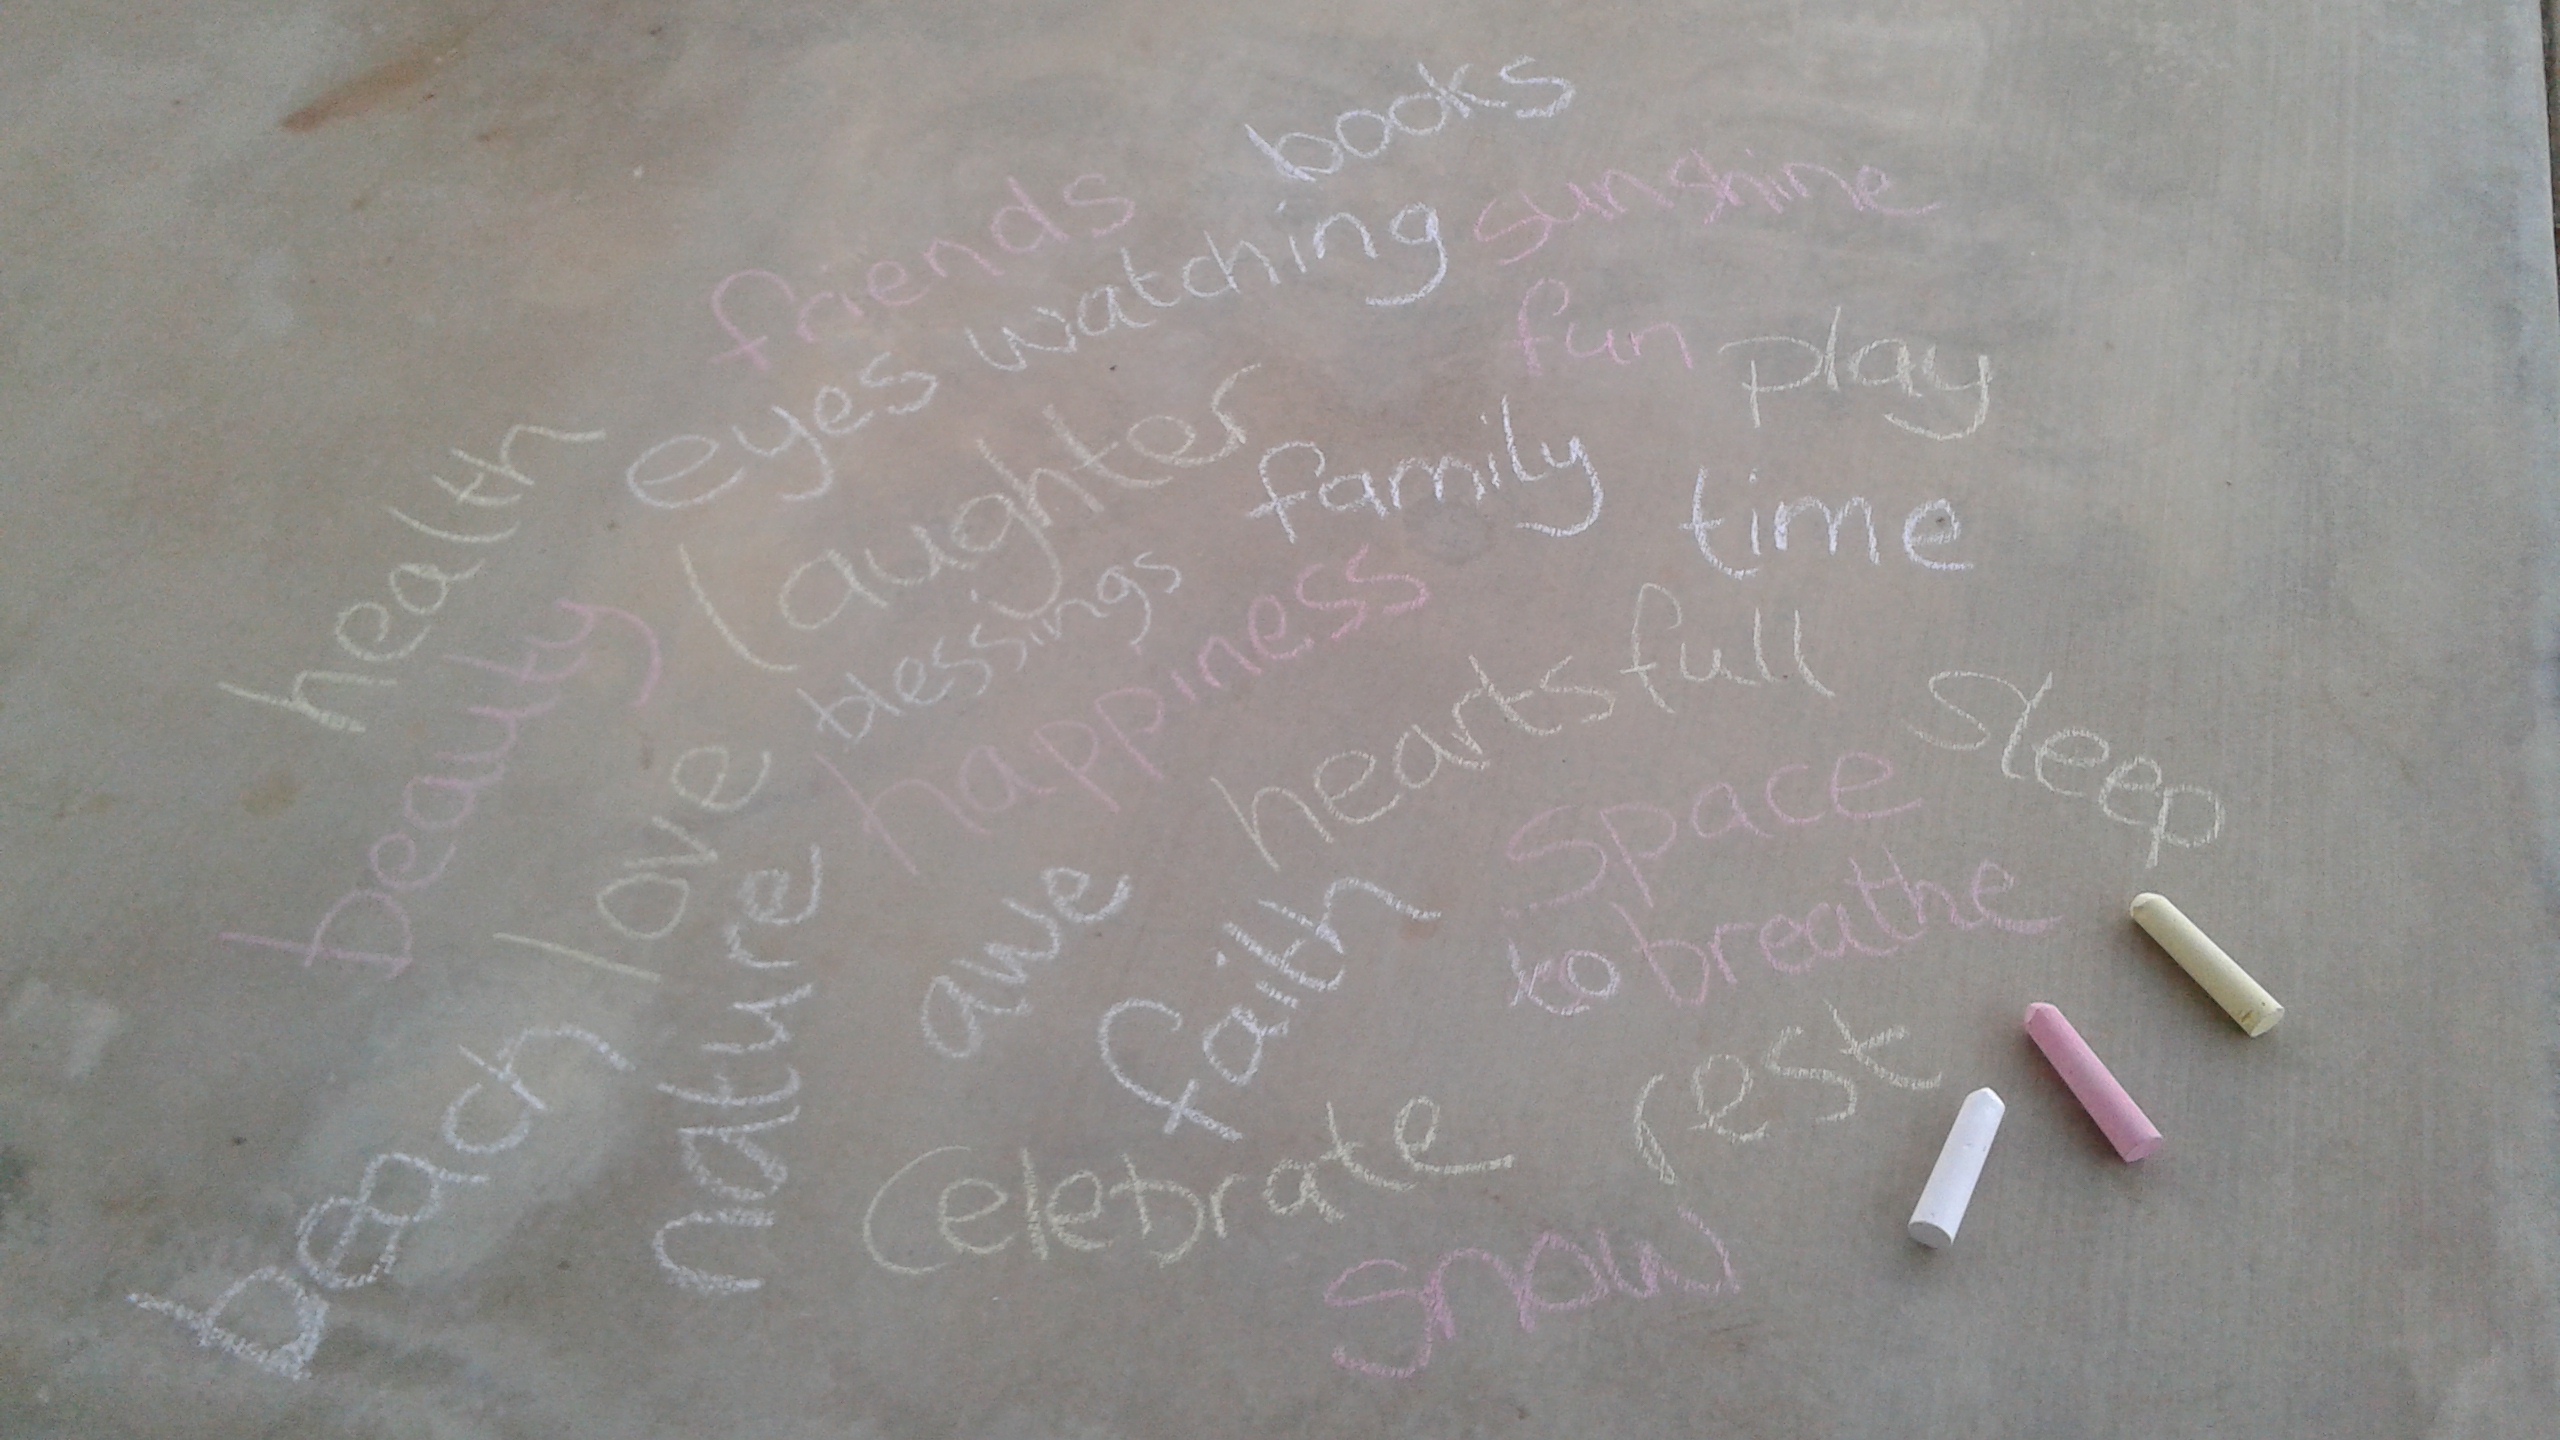 books
friends
sunshine
eyes watching
fun
play
health
laughter
family
time
beauty
blessings
happiness
hearts full
sleep
love
nature
awe
space
to breathe
faith
beach
rest
Celebrate
snow